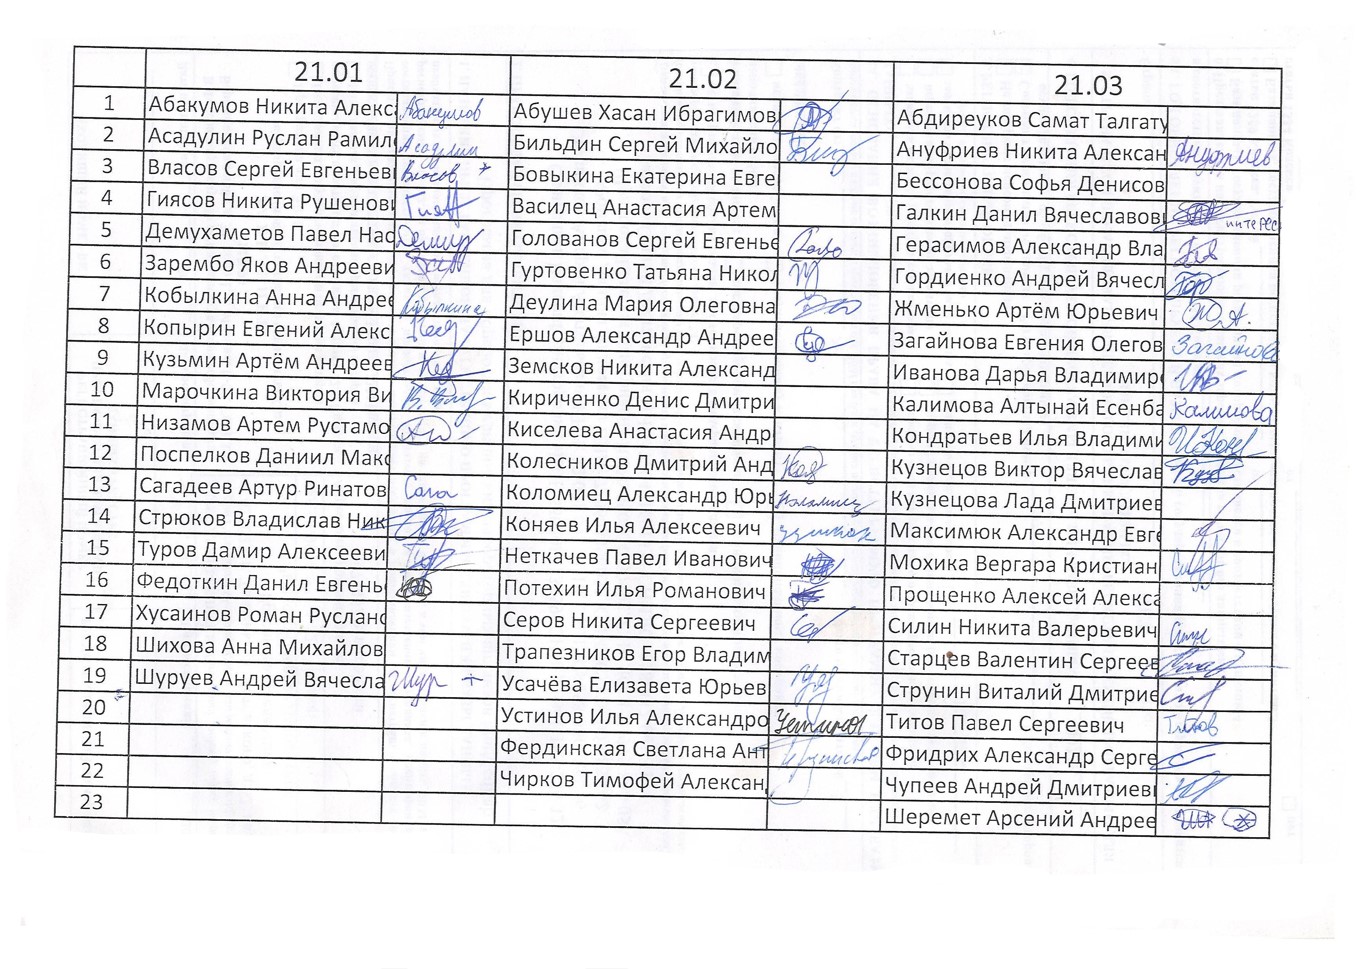 21.01 21.02 21.03
1 Абакумов Никита Алекса Абакумов Абушев Хасан Ибрагимов Абдиреуков Самат Талгату
2 Асадулин Руслан Рамил Асадулин Бильдин Сергей Михайло Ануфриев Никита Алексан Ануфриев
3 Власов Сергей Евгеньев Власов Бовыкина Екатерина Евге Бессонова Софья Денисов
4 Гиясов Никита Рушенови Василец Анастасия Артем Галкин Данил Вячеславови интерес
5 Демухаметов Павел Нас Голованов Сергей Евгенье Герасимов Александр Вла
6 Зарембо Яков Андрееви Гуртовенко Татьяна Никол Гордиенко Андрей Вячесл
7 Кобылкина Анна Андрее Кобылкина Деулина Мария Олеговна Жменько Артём Юрьевич
8 Копырин Евгений Алекс Ершов Александр Андрее Загайнова Евгения Олегов Загайнова
9 Кузьмин Артём Андреев Земсков Никита Александ Иванова Дарья Владимиро
10 Марочкина Виктория Ви Кириченко Денис Дмитри Калимова Алтынай Есенба Калимова
11 Низамов Артем Рустамо Киселева Анастасия Андр Кондратьев Илья Владими
12 Поспелков Даниил Макс Колесников Дмитрий Анд Кузнецов Виктор Вячеслав
13 Сагадеев Артур Ринатов Сага Коломиец Александр Юрь Коломиец Кузнецова Лада Дмитриев
14 Стрюков Владислав Ник Коняев Илья Алексеевич Максимюк Александр Евге
15 Туров Дамир Алексееви Неткачев Павел Иванович Мохика Вергара Кристиан
16 Федоткин Данил Евгень Потехин Илья Романович Прощенко Алексей Алекса
17 Хусаинов Роман Руслано Серов Никита Сергеевич Силин Никита Валерьевич
18 Шихова Анна Михайлов Трапезников Егор Владим Старцев Валентин Сергеев
19 Шуруев Андрей Вячесла Шур + Усачёва Елизавета Юрьев Струнин Виталий Дмитрие
20 Устинов Илья Александро Устинов Титов Павел Сергеевич Титов
21 Фердинская Светлана Ант Фридрих Александр Серге
22 Чирков Тимофей Алексан Чупеев Андрей Дмитриеви
23 Шеремет Арсений Андрее